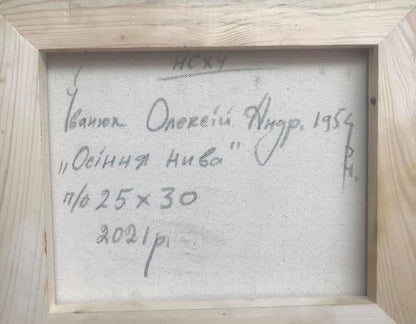 НСХУ
Іванюк Олексій Андр. 1954 р.н.
„Осіння нива"
п/о 25 х 30
2021р.